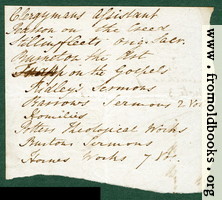 Clergymans Assistant
Pearson on the Creed
Stillingfleets Orig. Sacr.
Burnet on the Art
on the Gospels
Ridley's Sermons
Barrow's Sermons 2 Vol
Homilies
Potters Theological Works
Sermons
Hornes Works 7 Vls.
www.fromoldbooks.org